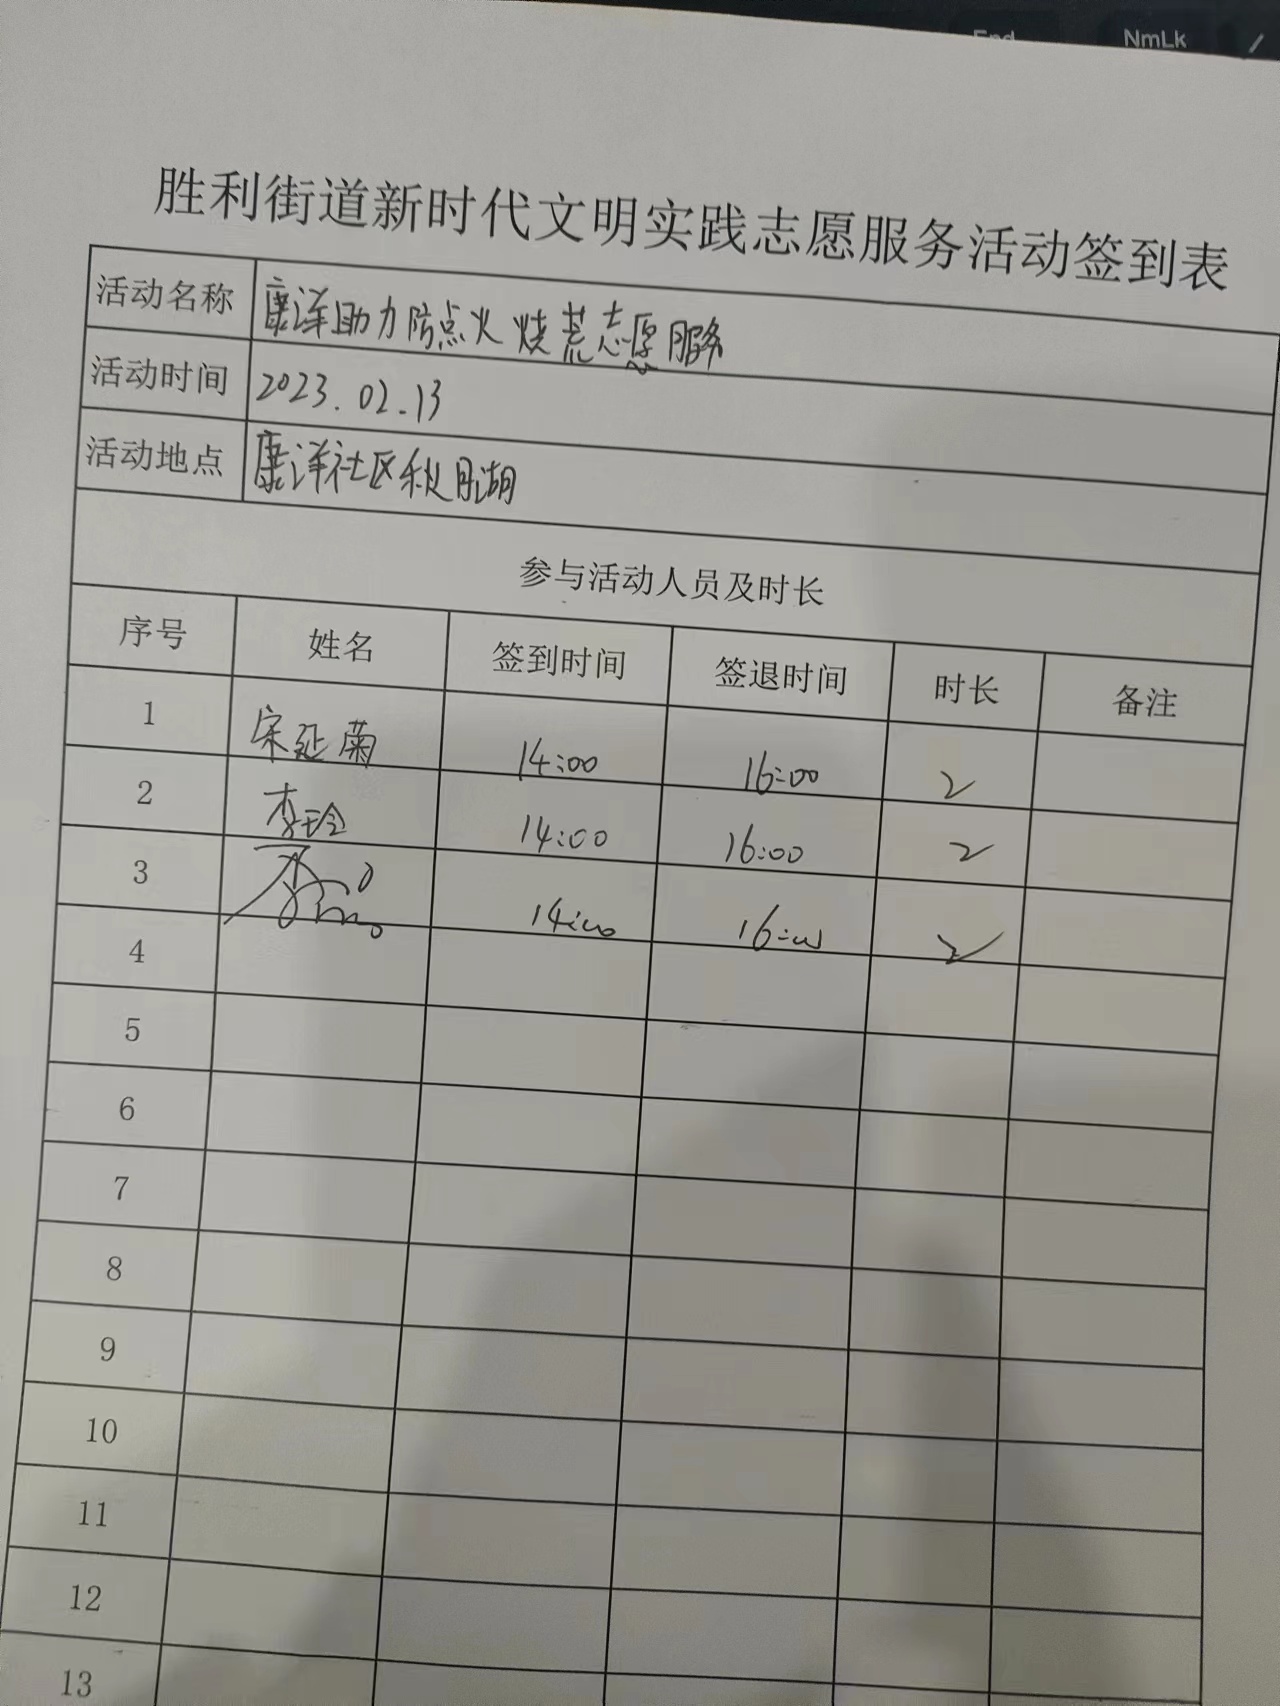 NmLk
胜利街道新时代文明实践志愿服务活动签到表
活动名称 康洋助力防点火烧荒志愿服务
活动时间 2023.02.13
活动地点 康洋社区秋月湖
参与活动人员及时长
序号 姓名 签到时间 签退时间 时长 备注
1 宋延菊 14:00 16:00 2
2 李玲 14:00 16:00 2
3 14:00 16:00 2
4
5
6
7
8
9
10
11
12
13